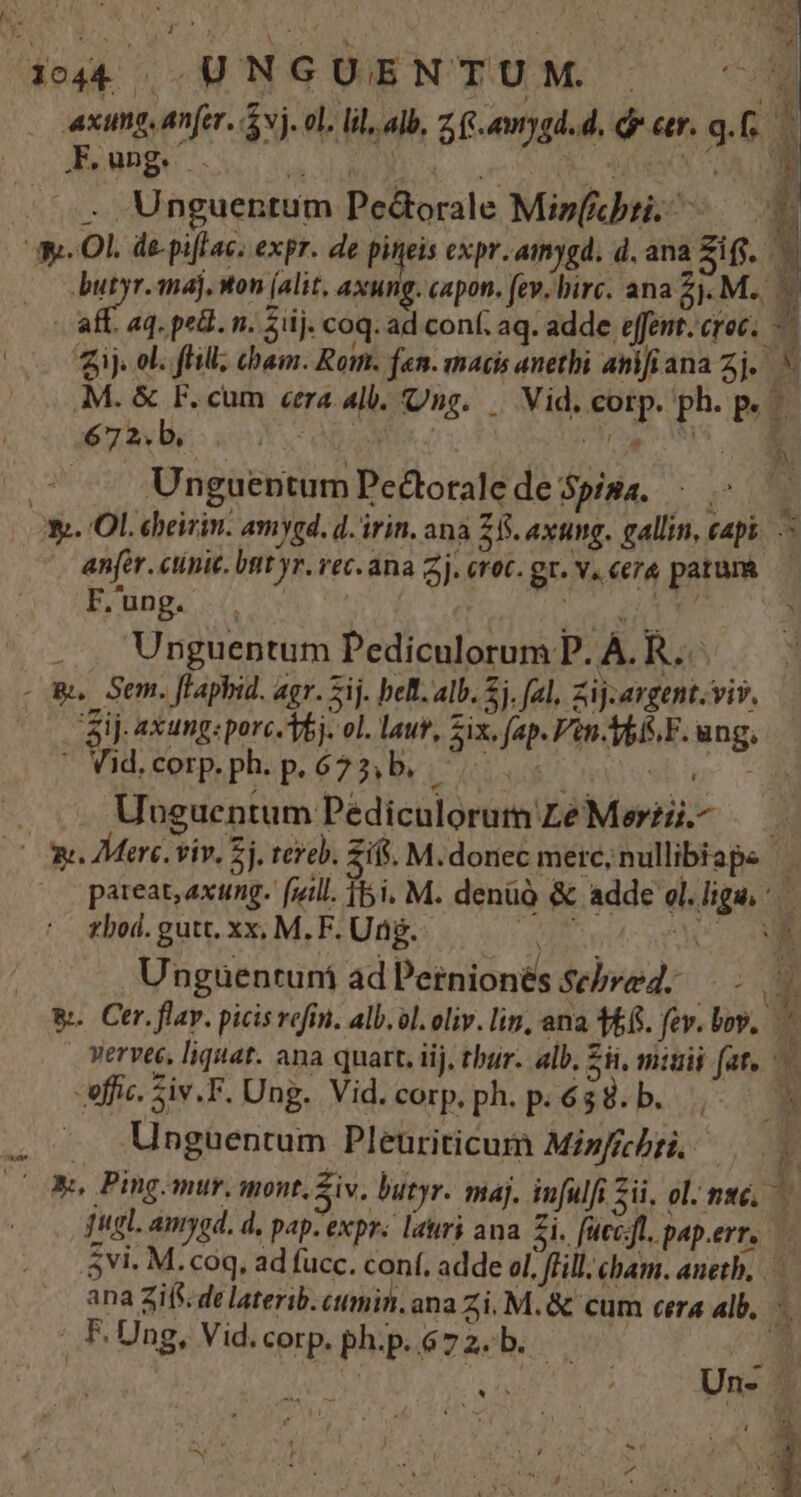 1044 UNGUENTUM.
axung. anſer. ʒvj. ol. lil. alb. ʒß. amygd. d. & cer. q. ſ.
F. ung.
Unguentum Pectorale Minſichti.
℞. Ol. de piſtac. expr. de pineis expr. amygd. d. ana ℥iß.
butyr. maj. non ſalit, axung. capon. ſev. hirc. ana ℥j. M.
aff. aq. pect. n. ℥iij. coq. ad conſ. aq. adde eſſent. croc.
ʒij. ol. ſtill. cham. Rom. fœn. macis anethi aniſi ana ʒj.
M. & F. cum cera alb. Ung. Vid. corp. ph. p.
672. b.
Unguentum Pectorale de Spina.
℞. Ol. cheirin. amygd. d. irin. ana ℥ß. axung. gallin, capi
anſer. cunic. butyr. rec. ana ʒj. croc. gr. v. cera parum
F. ung.
Unguentum Pediculorum P. A. R.
℞. Sem. ſtaphid. agr. ℥ij. hell. alb. ℥j. ſal, ʒij. argent. viv.
℥ij. axung. porc. ℔j. ol. laur, ℥ix. ſap. Ven. ℔ß. F. ung.
Vid. corp. ph. p. 673. b.
Unguentum Pediculorum Le Mortii.
℞. Merc. viv. ℥j. tereb. ℥iß. M. donec merc, nullibi ap-
pareat, axung. ſuill. ℔i. M. denuò & adde ol. lign.
rhod. gutt. xx. M. F. Ung.
Unguentum ad Perniones Schrœd.
℞. Cer. flav. picis reſin. alb. ol. oliv. lin, ana ℔ß. ſev. bov.
vervec. liquat. ana quart. iij. thur. alb. ℥ii. minii fat.
offic. ℥iv. F. Ung. Vid. corp. ph. p. 638. b.
Unguentum Pleuriticum Minſichti.
℞. Ping. mur. mont. ℥iv. butyr. maj. inſulſi ℥ii. ol. nuc.
jugl. amygd. d. pap. expr. lauri ana ℥i. ſucc. fl. pap. err.
℥vi. M. coq. ad ſucc. conſ. adde ol. ſtill. cham. aneth.
ana ʒiß. de laterib. cumin. ana ʒi. M. & cum cera alb.
F. Ung. Vid. corp. ph. p. 672. b.
Un-